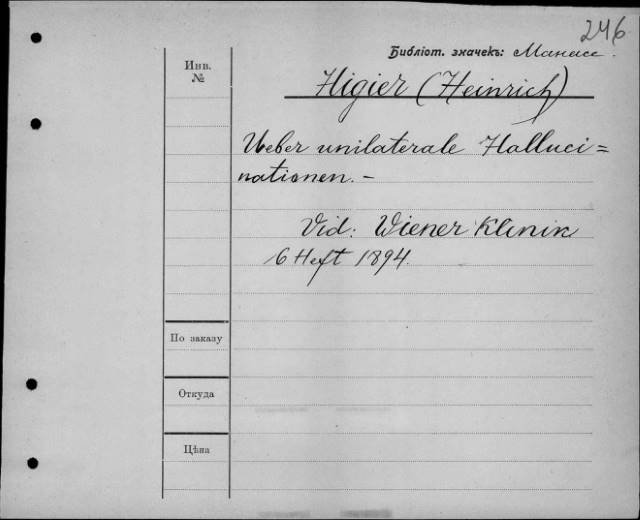 246
Библіот. значекъ: Манасс.
Инв.
№
Higier (Heinrich)
Ueber unilaterale Halluci=
nationen. –
Vid: Wiener Klinik
6 Heft 1894.
По заказу
Откуда
Цѣна